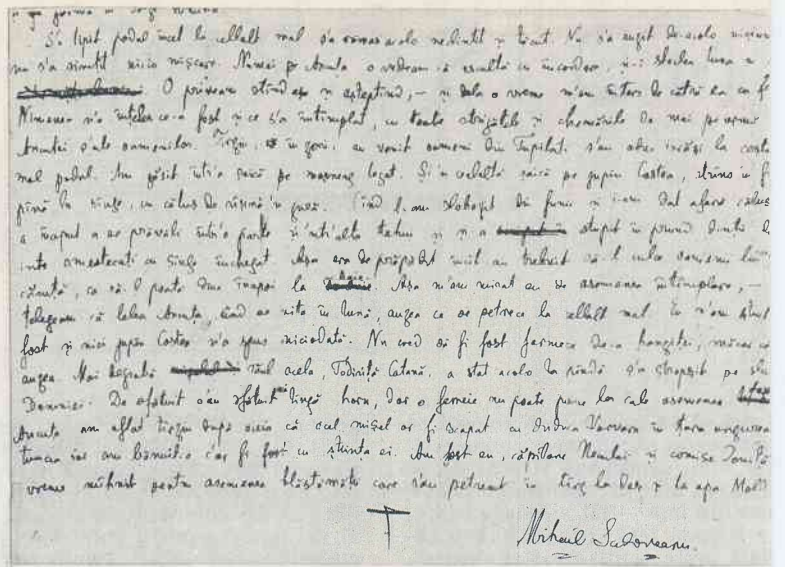 S'a lipit podul încet la cellalt mal și a rămas acolo neclintit și tăcut. Nu s'a auzit de-acolo
nu s'a simțit nicio mișcare. Numai pe Ancuța o vedeam că ascultă cu încordare, și-i sticlea luna
O priveam stînd și așteptînd, — și dela o vreme m'am întors de cătră ea
Nimenea n'a înțeles ce-a fost și ce s'a întîmplat, cu toate strigătele și chemările de mai pe urmă
Ancuței și ale oamenilor. Tîrziu, în zori, au venit oameni din Tupilați, s'au adus încoace la
mal podul. Am găsit într'o saică pe moșneag legat. Și'n cealaltă saică pe jupîn Costea, strîns
pînă la sînge, cu căluș de rășină'n gură. Cînd l-am slobozit din funii și i-am dat afară căluș
a început a se prăvăli într'o parte și'ntr'alta tăcînd și și-a stupit în prund dinții
amestecați cu sînge închegat. Așa era de prăpădit încît au trebuit să-l culce oamenii
căruță, ca să-l poată duce înapoi la Așa m'am mirat eu de asemenea întîmplare, —
lelea Ancuța, cînd se uita în lună, auzea ce se petrece la cellalt mal.
fost și nici jupîn Costea n'a spus niciodată. Nu cred să fi fost fermece de-a hangiței, măcar că
auzea. Mai degrabă tîlul acela, Todiriță Catană, a stat acolo la pîndă și a stropșit pe
Domniei. De sfătuit s-au sfătuit lîngă horn, dar o femeie nu poate pune la cale asemenea
Ancuța am aflat tîrziu după aceia că acel mișel ar fi scapat cu duduca Varvara în țara ungurească
am bănuit-o c'ar fi fost cu știința ei. Am fost eu, căpitane Neculai și comise Ioniță
vreme mîhnit pentru asemenea blăstămății care s'au petrecut în tîrg la Deș și la apa
Mihail Sadoveanu.